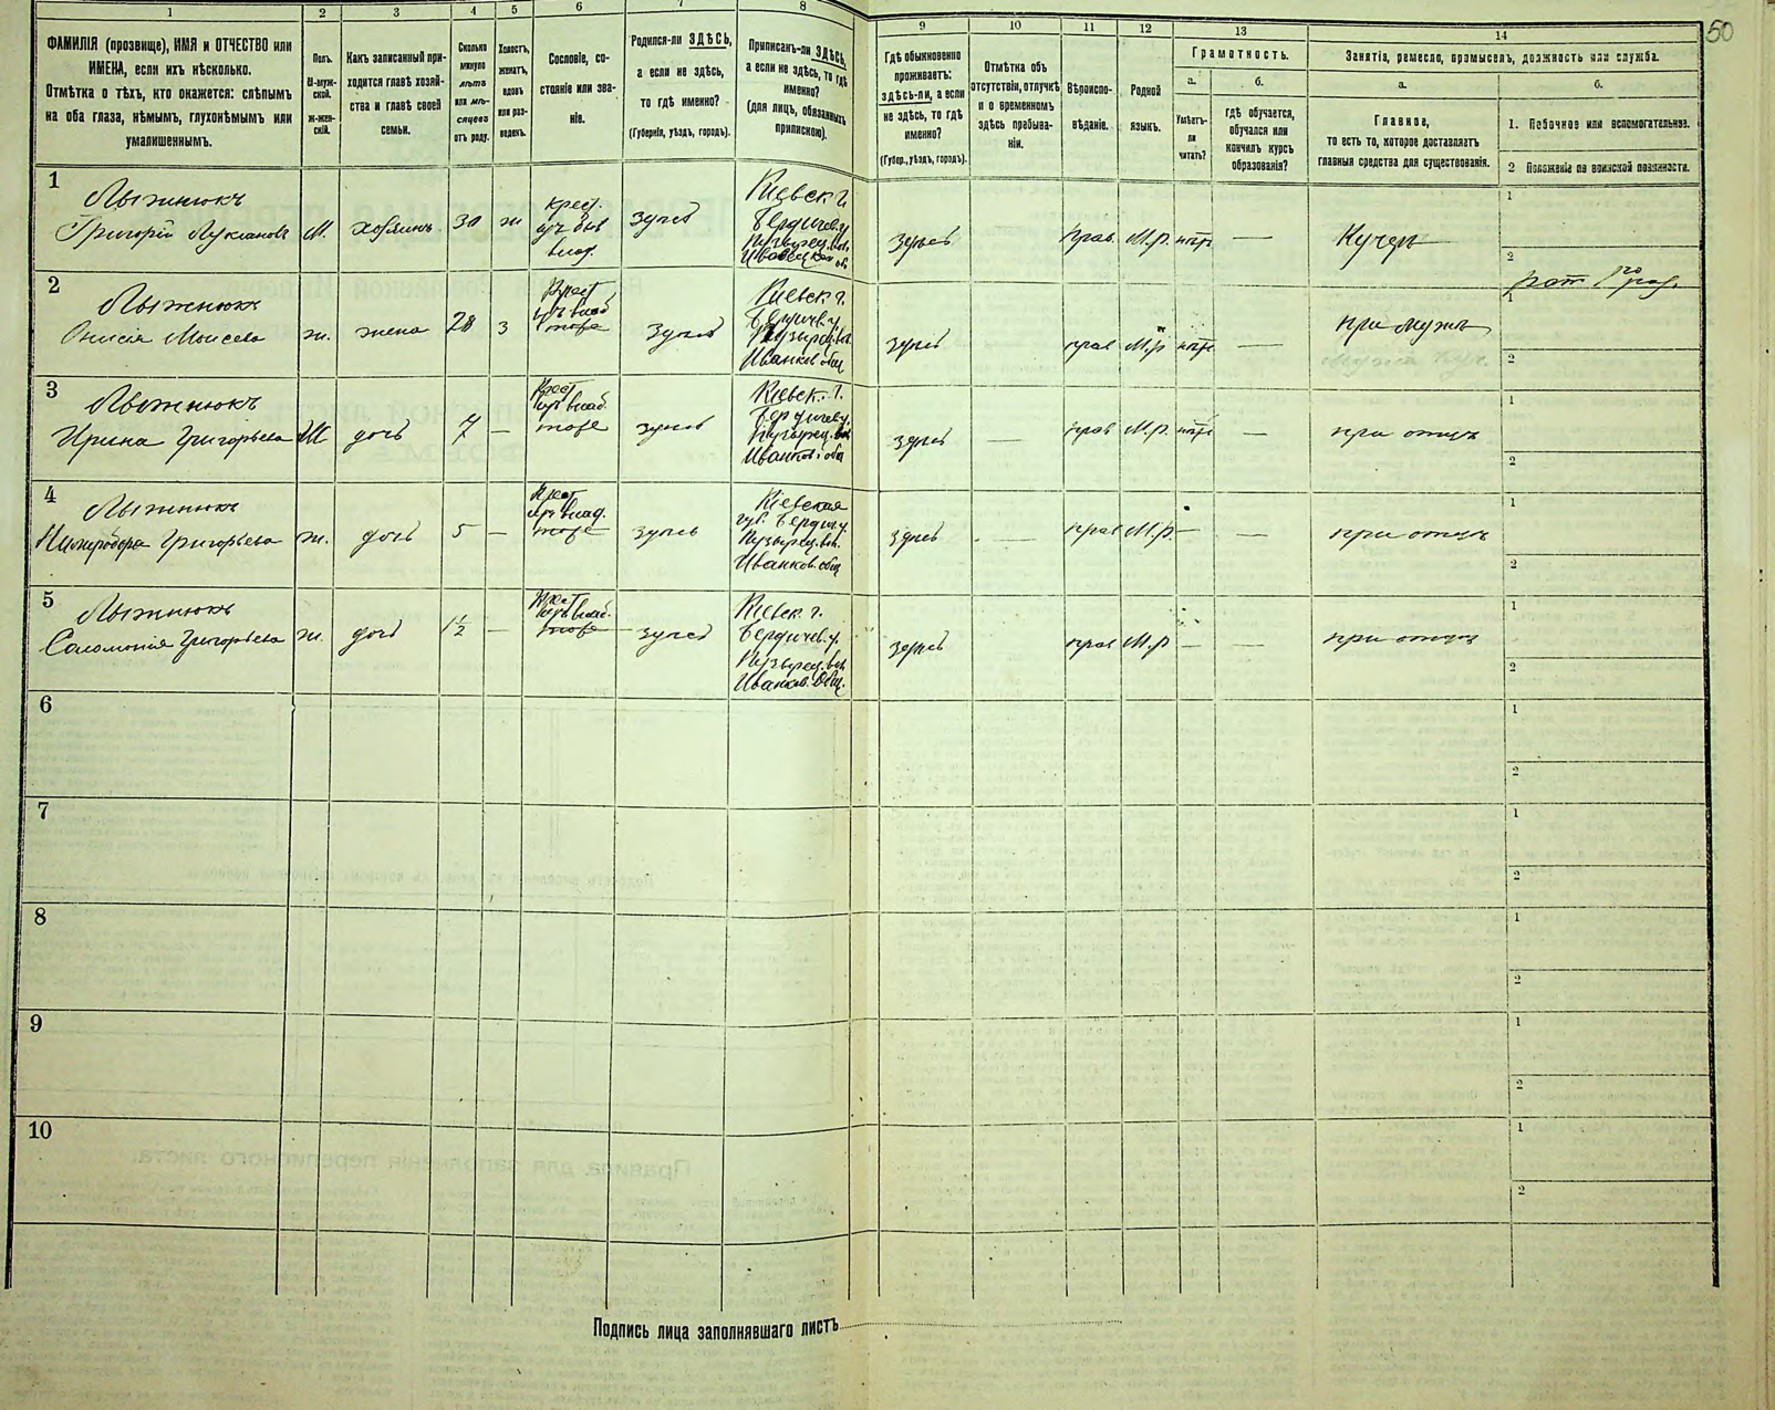 50
1 2 3 4 5 6 7 8 9 10 11 12 13 14
ФАМИЛІЯ (прозвище), ИМЯ и ОТЧЕСТВО или
ИМЕНА, если ихъ нѣсколько.
Отмѣтка о тѣхъ, кто окажется: слѣпымъ
на оба глаза, нѣмымъ, глухонѣмымъ или
умалишеннымъ.
Полъ.
М-муж-
ской.
ж-жен-
скій.
Какъ записанный при-
ходится главѣ хозяй-
ства и главѣ своей
семьи.
Сколько
минуло
лѣтъ
или мѣ-
сяцевъ
отъ роду.
Холостъ,
женатъ,
вдовъ
или раз-
веденъ.
Сословіе, со-
стояніе или зва-
ніе.
Родился-ли ЗДѢСЬ,
а если не здѣсь,
то гдѣ именно?
(Губернія, уѣздъ, городъ).
Приписанъ-ли ЗДѢСЬ,
а если не здѣсь, то гдѣ
именно?
(для лицъ, обязанныхъ
припискою).
Гдѣ обыкновенно
проживаетъ:
здѣсь-ли, а если
не здѣсь, то гдѣ
именно?
(Губер., уѣздъ, городъ).
Отмѣтка объ
отсутствіи, отлучкѣ
и о временномъ
здѣсь пребыва-
ніи.
Вѣроиспо-
вѣданіе.
Родной
языкъ.
Грамотность.
а.
Умѣетъ-
ли
читать?
б.
гдѣ обучается,
обучался или
кончилъ курсъ
образованія?
Занятія, ремесло, промыселъ, должность или служба.
а.
Главное,
то есть то, которое доставляетъ
главныя средства для существованія.
б.
1. Побочное или вспомогательное.
2 Положеніе по воинской повинности.
1
Лыжнюкъ
Григорій Лукіановъ М. хозяинъ 30 ж
крест.
изъ
влад.
здѣсь
Кіевск г.
Бердичев у
здѣсь прав. М.р. нѣтъ — Кучеръ
1
2
2
Лыжнюкъ
Онисія Моисеева ж. жена 28 з
Крест
изъ влад
тоже
здѣсь
Кіевск г.
Бердичев. у.
Пузырец. вол.
Иванков общ
здѣсь прав М.р нѣтъ — при мужѣ
1
2
3
Лыжнюкъ
Ирина Григорьева дочь 7 —
Крест
изъ влад.
тоже
здѣсь
Кіевск. г.
Бердичев у.
Пузырец. вол
Иванков. общ
здѣсь — прав М.р. нѣтъ — при отцѣ
1
2
4
Лыжнюкъ
Григорьева ж. дочь 5 —
Крест
изъ влад.
тоже
здѣсь
Кіевская
губ. Бердич. у.
Пузырец. вол.
Иванков. общ
здѣсь — прав М.р. — — при отцѣ
1
2
5
Лыжнюкъ
Соломонія Григорьева ж. дочь 1½ —
Крест
изъ влад.
тоже
здѣсь
Кіевск. г.
Бердичев. у.
Пузырец. вол.
Иванков. Общ.
здѣсь прав М.р — — при отцѣ
1
2
6
1
2
7
1
2
8
1
2
9
1
2
10
1
2
Подпись лица заполнявшаго листъ